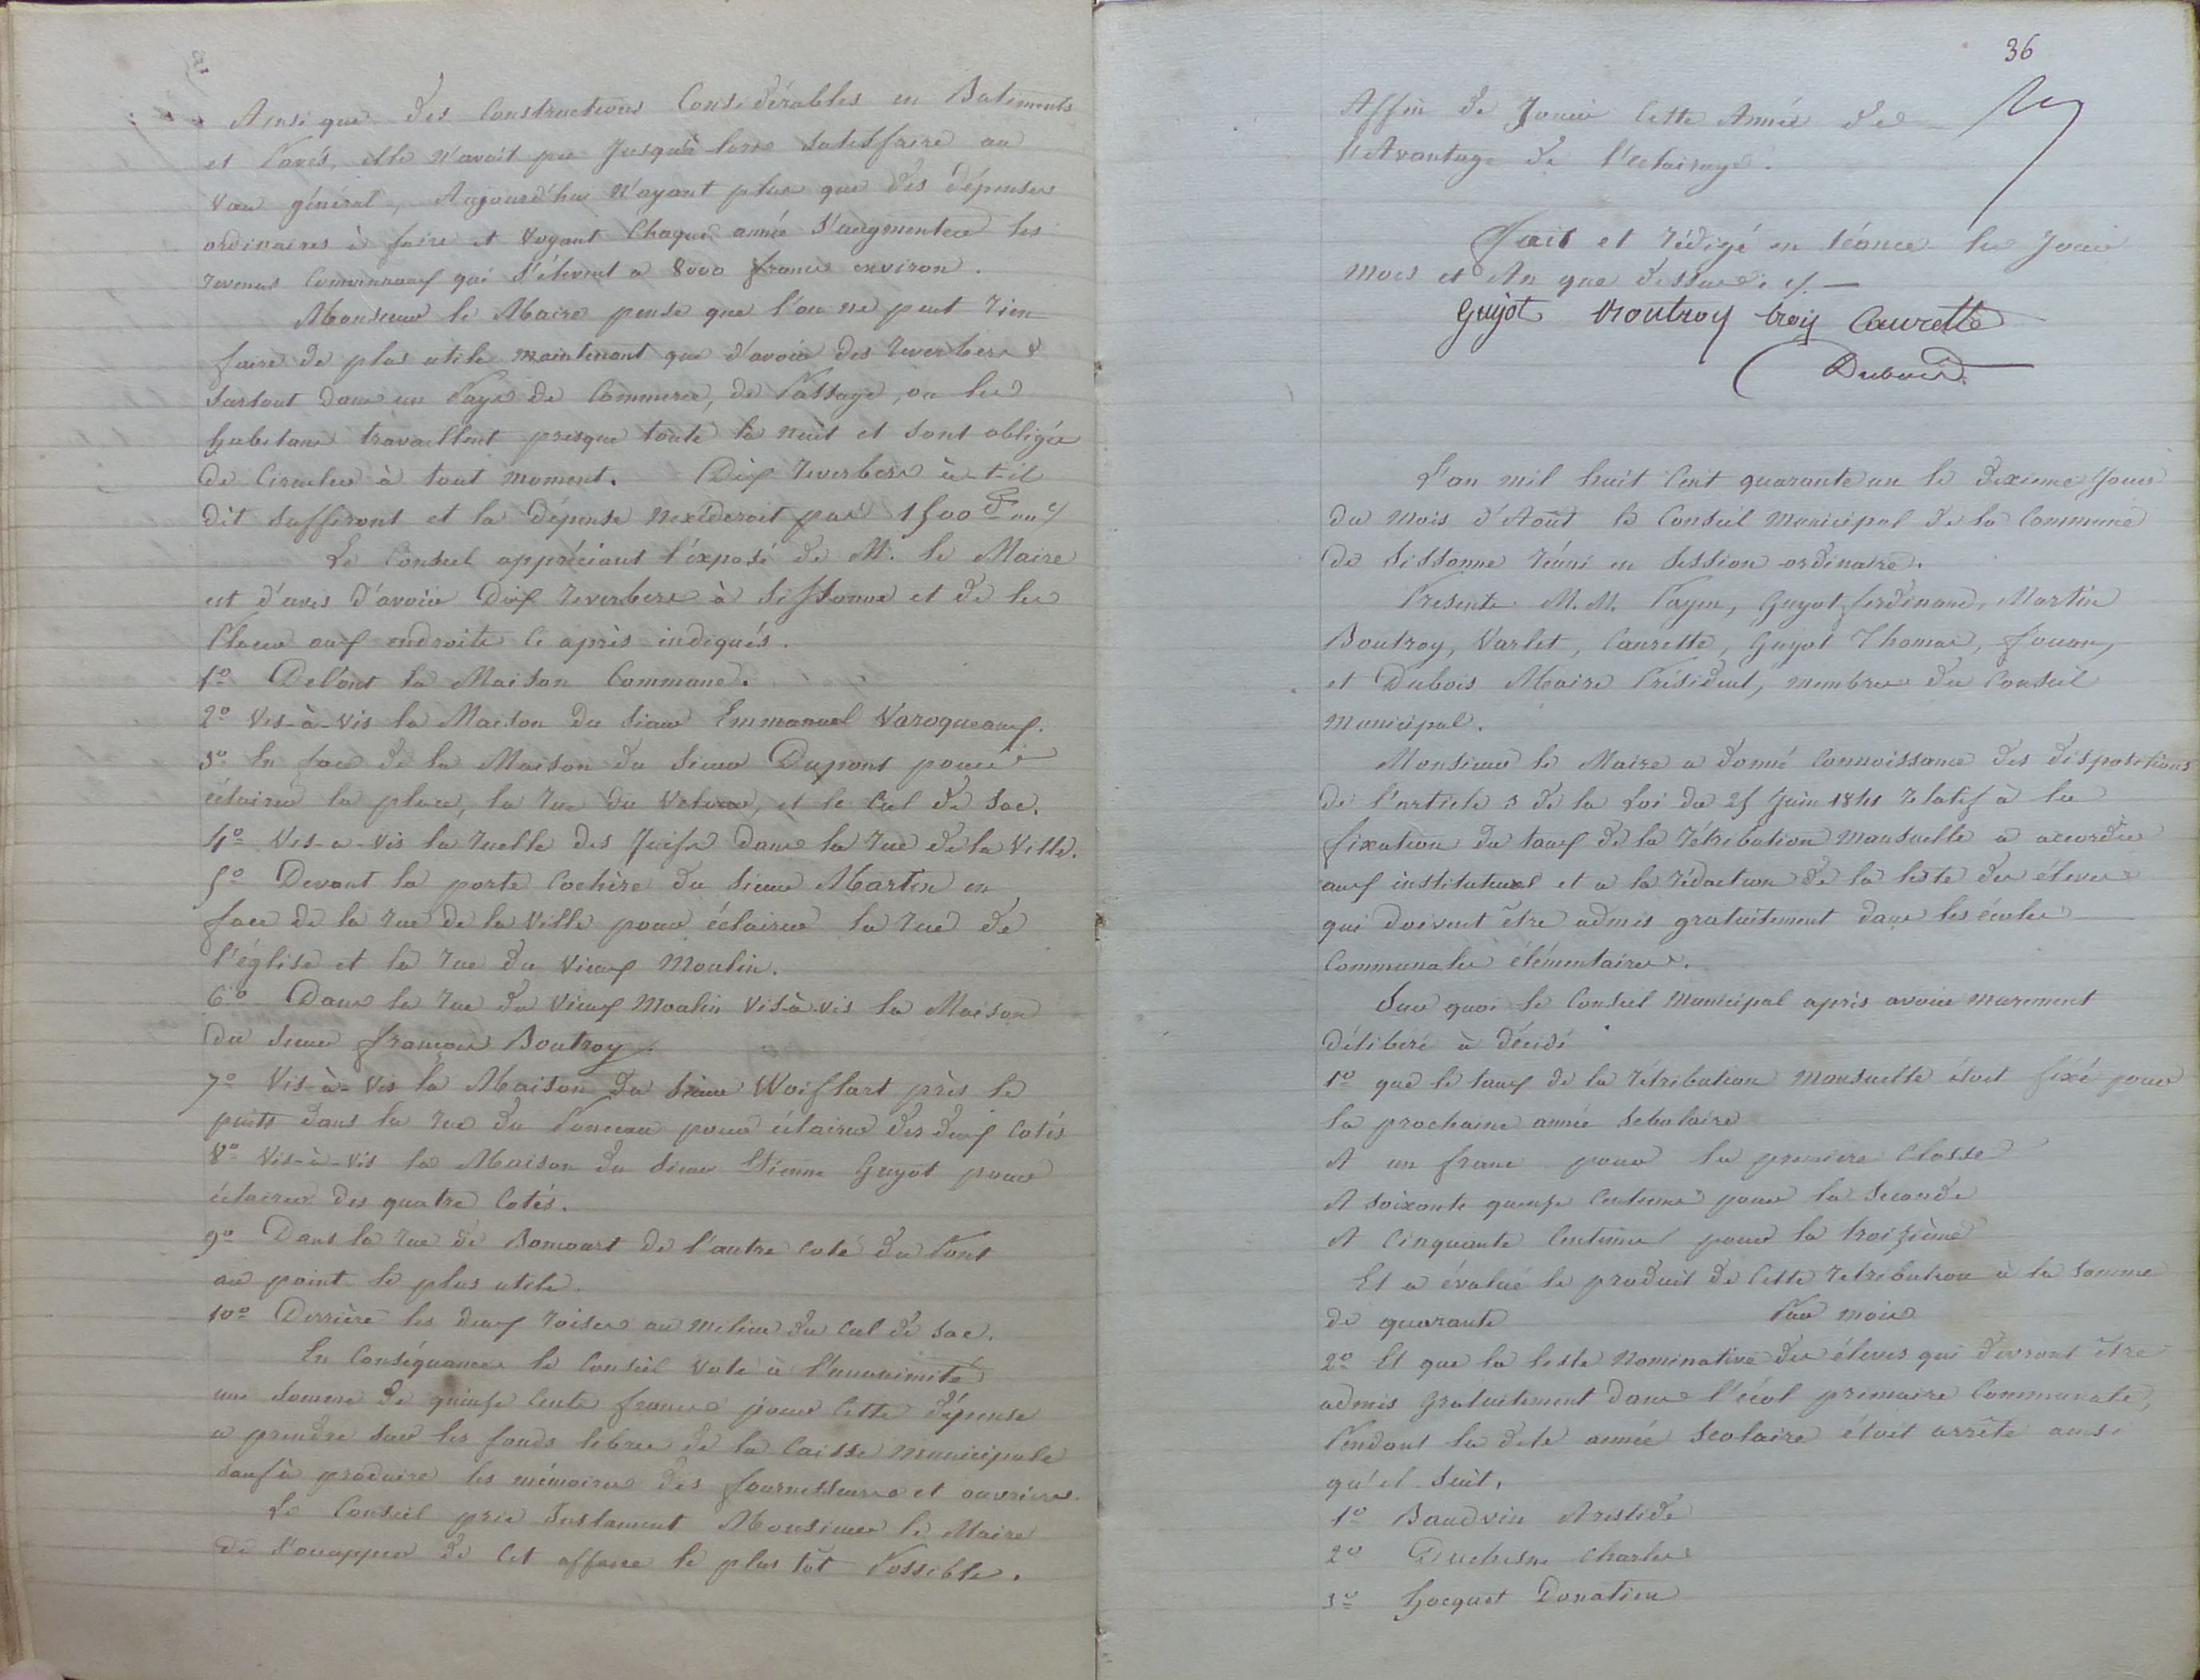 Ainsi que des Constructions Considérables en Batiments
et Pavés, elle n'avait pu Jusqu'à lors Satisfaire au
Vœu général, Aujourd'hui N'ayant plus que des dépenses
ordinaires à faire et Voyant Chaque année S'augmenter les
revenus Communaux qui S'élèvent a 8000 francs environ.
Monsieur le Maire pense que l'on ne peut rien
faire de plus utile maintenant que d'avoir des reverberes
Surtout dans un Pays de Commerce, de Passage, ou les
habitans travaillent presque toute la nuit et Sont obligés
de Circuler à tout moment. Dix reverberes à-t-il
dit Suffiront et la dépense n'exèderoit pas 1500 F
Le Conseil appréciant l'éxposé de M. le Maire
est d'avis d'avoir Dix reverberes à Sissonne et de les
Placer aux endroits Ci après indiqués.
1º Devant la Maison Commune.
2º Vis-à-Vis la Maison du Sieur Emmanuel Varoqueaux.
3º En face de la Maison du Sieur Dupont pour
éclairer la place, la rue du Velours, et le Cul de Sac.
4º Vis-a-Vis la ruelle des Juifs dans la rue de la Ville.
5º Devant la porte Cochère du Sieur Martin en
face de la rue de la Ville pour éclairer la rue de
l'église et la rue du Vieux Moulin.
6º Dans la rue du Vieux Moulin Vis-à-vis la Maison
du Sieur François Boutroy.
7º Vis-à-Vis la Maison du Sieur Woiflart près le
puits dans la rue du Ponceau pour éclairer des deux Cotés
8º Vis-à-Vis la Maison du Sieur Etienne Guyot pour
éclairer des quatre Cotés.
9º Dans la rue de Boncourt de l'autre Coté du Pont
au point le plus utile.
10º Derrière les deux toises au milieu du Cul de Sac.
En Conséquence le Conseil Vote à l'unanimité
une Somme de quinze Cents francs pour Cette dépense
a prendre Sur les fonds libres de la Caisse Municipale
Sauf à produire les mémoires des fournisseurs et ouvriers.
Le Conseil prie Instament Monsieur le Maire
de S'occupper de Cet affaire le plus tôt Possible.
36
Affin de Jouir Cette Année de
l'Avantage de l'éclairage.
Fait et rédigé en Séance les Jour
Mois et An que dessus.
Guyot Boutroy troy Caurette
Dubois
L'an mil huit Cent quarante un le dixieme Jour
du Mois d'Août le Conseil Municipal de la Commune
de Sissonne réuni en Session ordinaire.
Presents M. M. Payen, Guyot ferdinand, Martin
Boutroy, Varlet, Caurette, Guyot Thomas, fouan,
et Dubois Maire Président, membres du Conseil
Municipal.
Monsieur le Maire a donné Connoissance des dispositions
de l'article 3 de la Loi du 25 Juin 1841 relatif à la
fixation du taux de la rétribution Mansuelle a accorder
aux instituteurs et a la rédaction de la liste des éleves
qui doivent être admis gratuitement dans les écoles
Communales élémentaires.
Sur quoi le Conseil Municipal après avoir murement
déliberé à décidé
1º que le taux de la rétribution Mansuelle étoit fixé pour
la prochaine année Scholaire
A un franc pour la premiere Classe
A Soixante quinze Centimes pour la Seconde
A Cinquante Centimes pour la troizième
Et a évalué le produit de Cette retribution à la Somme
de quarante Par mois
2º Et que la liste Nominative des éleves qui devront être
admis Gratuitement dans l'écol primaire Communale,
Pendant la dite année Scolaire étoit arrêté ainsi
qu'il Suit.
1º Baudvin Aristide
2º Duchesne Charles
3º Hocquet Donatien